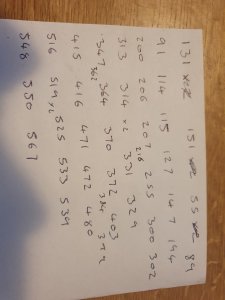 131 151 55 89
91 114 115 127 147 194
200 206 207 228 255 300 302
313 314 x2 331 329
347 362 364 370 372 403
415 416 471 472 480 384 379
516 519 x2 525 533 539
548 550 567